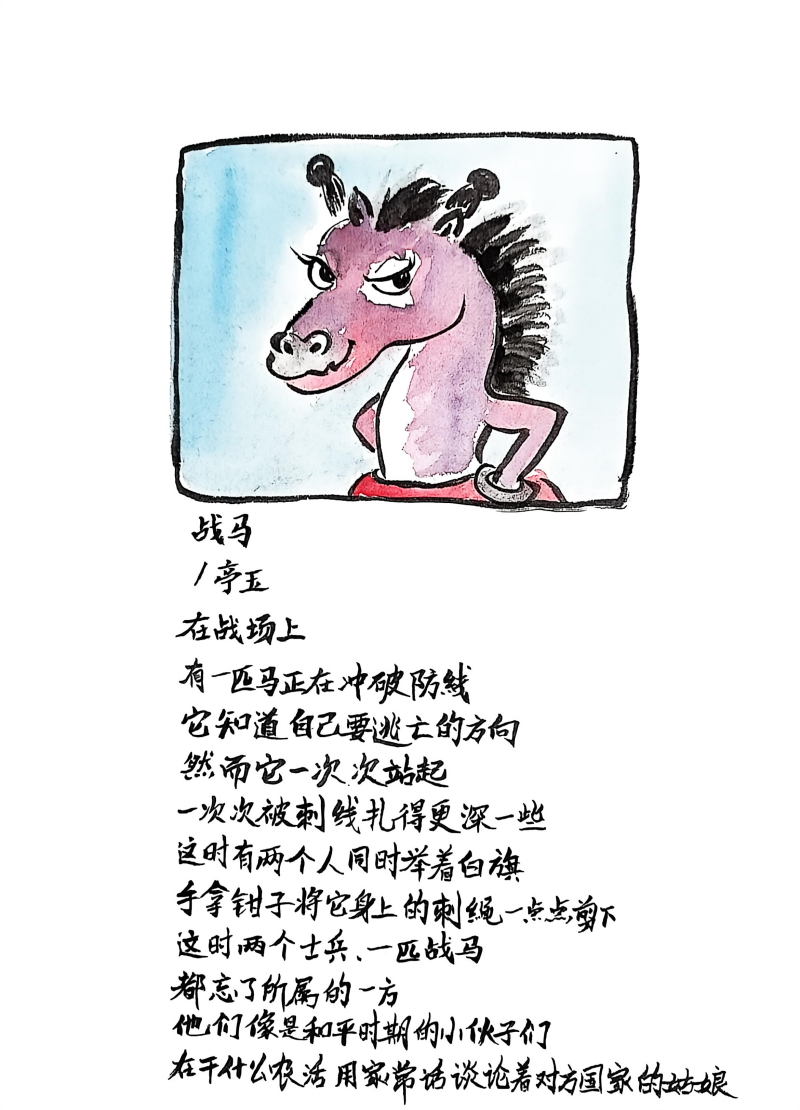 战马
/亭玉
在战场上
有一匹马正在冲破防线
它知道自己要逃亡的方向
然而它一次次站起
一次次被刺线扎得更深一些
这时有两个人同时举着白旗
手拿钳子将它身上的刺绳一点点剪下
这时两个士兵、一匹战马
都忘了所属的一方
他们像是和平时期的小伙子们
在干什么农活用家常话谈论着对方国家的姑娘